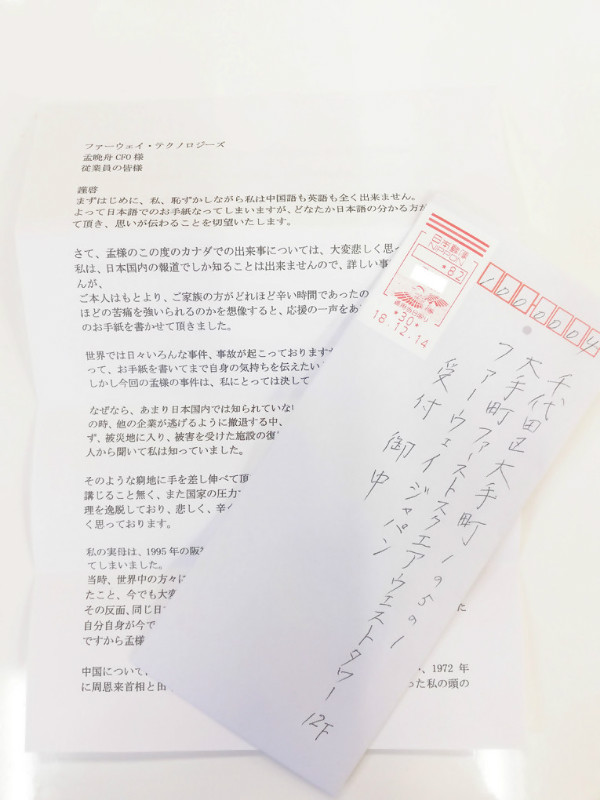 ファーウェイ・テクノロジーズ
孟晩舟 CFO 様
従業員の皆様
謹啓
まずはじめに、私、恥ずかしながら私は中国語も英語も全く出来ません。
よって日本語でのお手紙なってしまいますが、どなたか日本語の分かる方が
て頂き、思いが伝わることを切望いたします。
さて、孟様のこの度のカナダでの出来事については、大変悲しく思っ
私は、日本国内の報道でしか知ることは出来ませんので、詳しい事
んが、
ご本人はもとより、ご家族の方がどれほど辛い時間であったの
ほどの苦痛を強いられるのかを想像すると、応援の一声をあ
のお手紙を書かせて頂きました。
世界では日々いろんな事件、事故が起こっております
って、お手紙を書いてまで自身の気持ちを伝えたい
しかし今回の孟様の事件は、私にとっては決して
なぜなら、あまり日本国内では知られていない
の時、他の企業が逃げるように撤退する中、
ず、被災地に入り、被害を受けた施設の復
人から聞いて私は知っていました。
そのような窮地に手を差し伸べて頂
講じること無く、また国家の圧力で
理を逸脱しており、悲しく、辛
く思っております。
私の実母は、1995 年の阪
てしまいました。
当時、世界中の方々に
たこと、今でも大変
その反面、同じ日
自分自身が今で
ですから孟様
中国について、
、1972 年
に周恩来首相と田
った私の頭の
日本郵便
NIPPON
*82
*30*
18.12.14
1000004
千代田区大手町1の5の1
大手町ファーストスクエアウェストタワー12F
ファーウェイジャパン
受付 御中